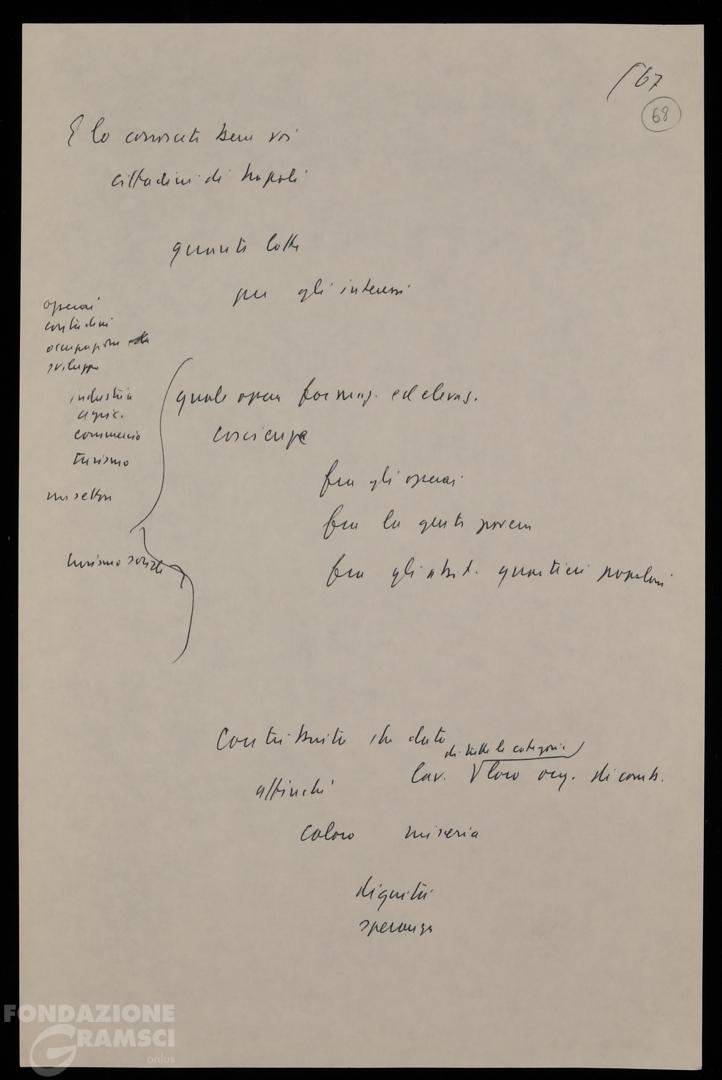 67
68
E lo conoscete bene voi
cittadini di Napoli
quante lotte
per gli interessi
operai
contadini
occupazione
sviluppo
industria
agric.
commercio
turismo
quale opera formaz. ed elevaz.
coscienza
fra gli operai
fra la gente povera
fra gli abit. quartieri popolari
Contributo che date
di tutte le categorie
lav. loro org. di comb.
affinché
coloro miseria
dignità
speranza
FONDAZIONE
GRAMSCI
onlus